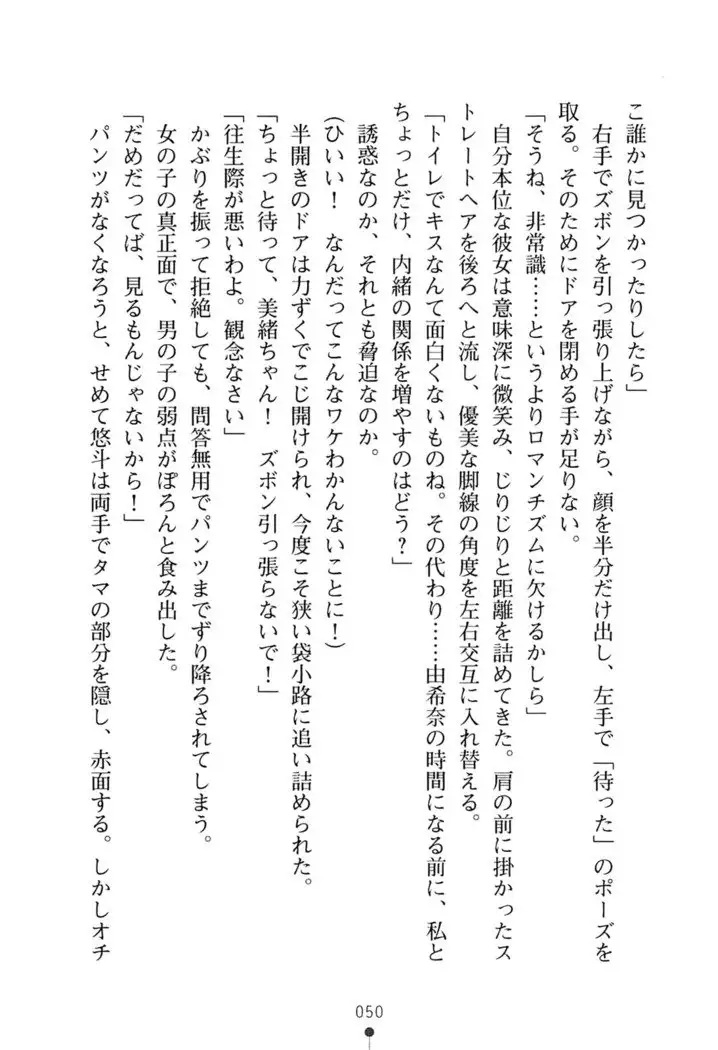 こ誰かに見つかったりしたら」
右手でズボンを引っ張り上げながら、顔を半分だけ出し、左手で「待った」のポーズを
取る。そのためにドアを閉める手が足りない。
「そうね、非常識……というよりロマンチズムに欠けるかしら」
自分本位な彼女は意味深に微笑み、じりじりと距離を詰めてきた。肩の前に掛かったス
トレートヘアを後ろへと流し、優美な脚線の角度を左右交互に入れ替える。
「トイレでキスなんて面白くないものね。その代わり……由希奈の時間になる前に、私と
ちょっとだけ、内緒の関係を増やすのはどう？」
誘惑なのか、それとも脅迫なのか。
(ひいい！　なんだってこんなワケわかんないことに！)
半開きのドアは力ずくでこじ開けられ、今度こそ狭い袋小路に追い詰められた。
「ちょっと待って、美緒ちゃん！　ズボン引っ張らないで！」
「往生際が悪いわよ。観念なさい」
かぶりを振って拒絶しても、問答無用でパンツまでずり降ろされてしまう。
女の子の真正面で、男の子の弱点がぽろんと食み出した。
「だめだってば、見るもんじゃないから！」
パンツがなくなろうと、せめて悠斗は両手でタマの部分を隠し、赤面する。しかしオチ
050